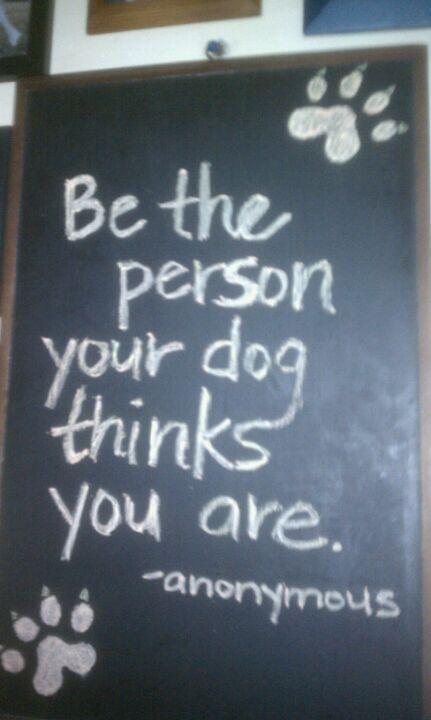 Be the
person
your dog
thinks
you are.
-anonymous